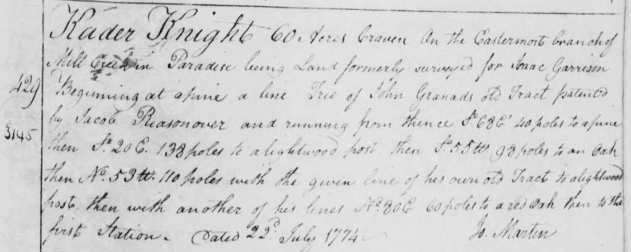 Kader Knight 60 Acres Craven On the Eastermost branch of
Mill Creek in Paradise being Land formerly surveyed for Isaac Garrison
429 Beginning at a pine a line Tree of John Granads old Tract patented
by Jacob Reasonover and running from thence So. 68 E. 40 poles to a pine
3145 then So. 20 E. 138 poles to a lightwood post. then So. 55 W. 98 poles to an Oak
then No. 53 W. 110 poles with the given line of his own old Tract to a lightwood
post. then with another of his lines No. 80 E 60 poles to a red Oak then to the
first Station. Dated 22d. July 1774 Jo. Martin